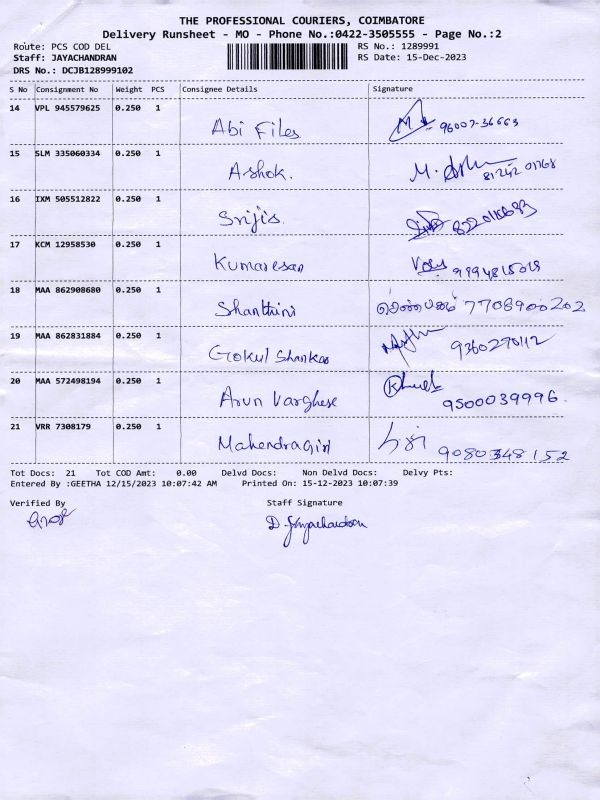 THE PROFESSIONAL COURIERS, COIMBATORE
Delivery Runsheet - MO - Phone No.:0422-3505555 - Page No.:2
Route: PCS COD DEL RS No.: 1289991
Staff: JAYACHANDRAN RS Date: 15-Dec-2023
DRS No.: DCJB128999102
S No Consignment No Weight PCS Consignee Details Signature
14 VPL 945579625 0.250 1
Abi Files 96007-36663
15 SLM 335060334 0.250 1
Ashok. 81242 01768
16 IXM 505512822 0.250 1
Srijis
17 KCM 12958530 0.250 1
Kumaresan
18 MAA 862908680 0.250 1
Shanthini செண்பகம் 7708900202
19 MAA 862831884 0.250 1
Gokul Shankar 9360270112
20 MAA 572498194 0.250 1
Arun Varghese 9500039996.
21 VRR 7308179 0.250 1
Mahendragiri 9080348152
Tot Docs: 21 Tot COD Amt: 0.00 Delvd Docs: Non Delvd Docs: Delvy Pts:
Entered By :GEETHA 12/15/2023 10:07:42 AM Printed On: 15-12-2023 10:07:39
Verified By Staff Signature
D. Jayachandran